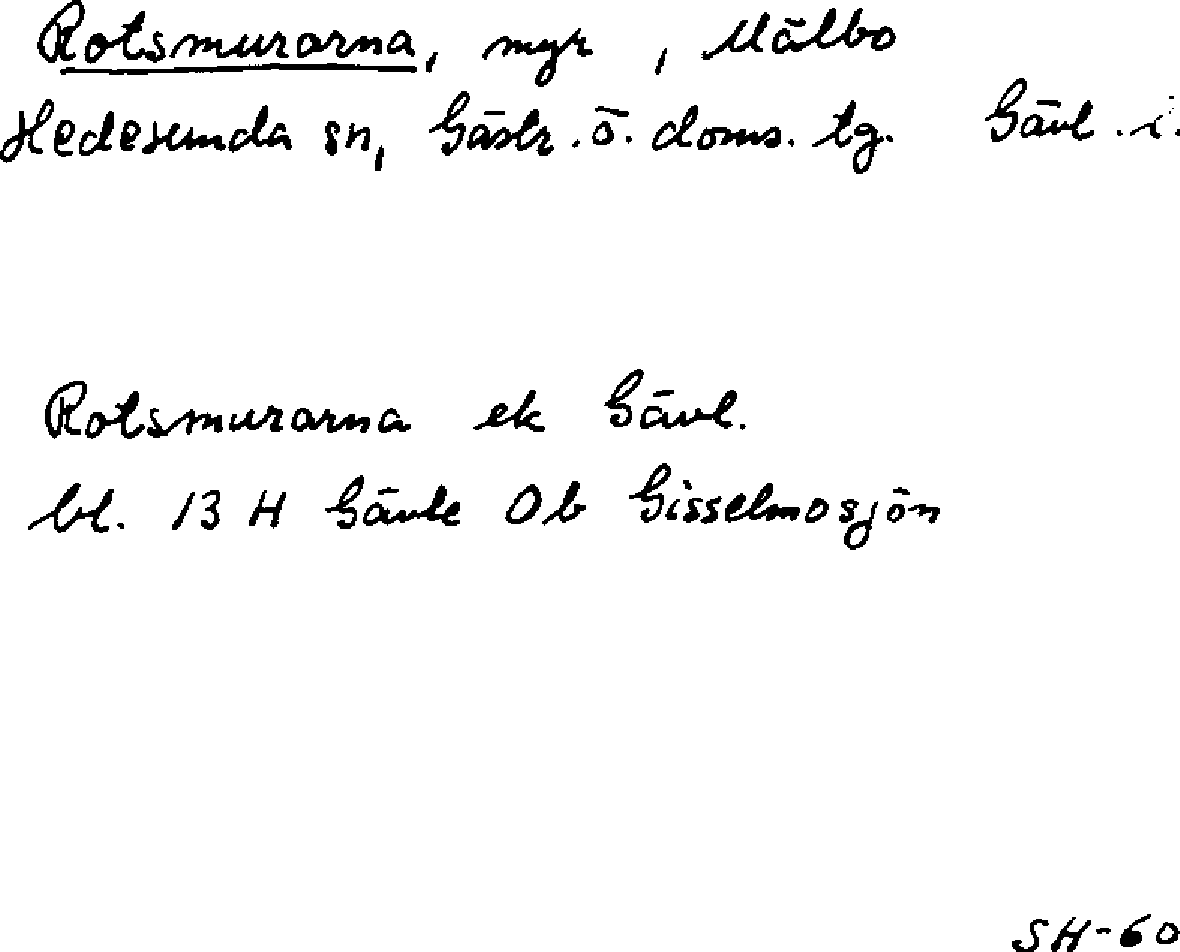 Rotsmurarna, myr , Mälbo
Hedesunda sn, Gästr. ö. doms. tg. Gävl. i.
Rotsmurarna ek Gävl.
bl. 13 H Gävle Ob Gisselmosjön
SH-60